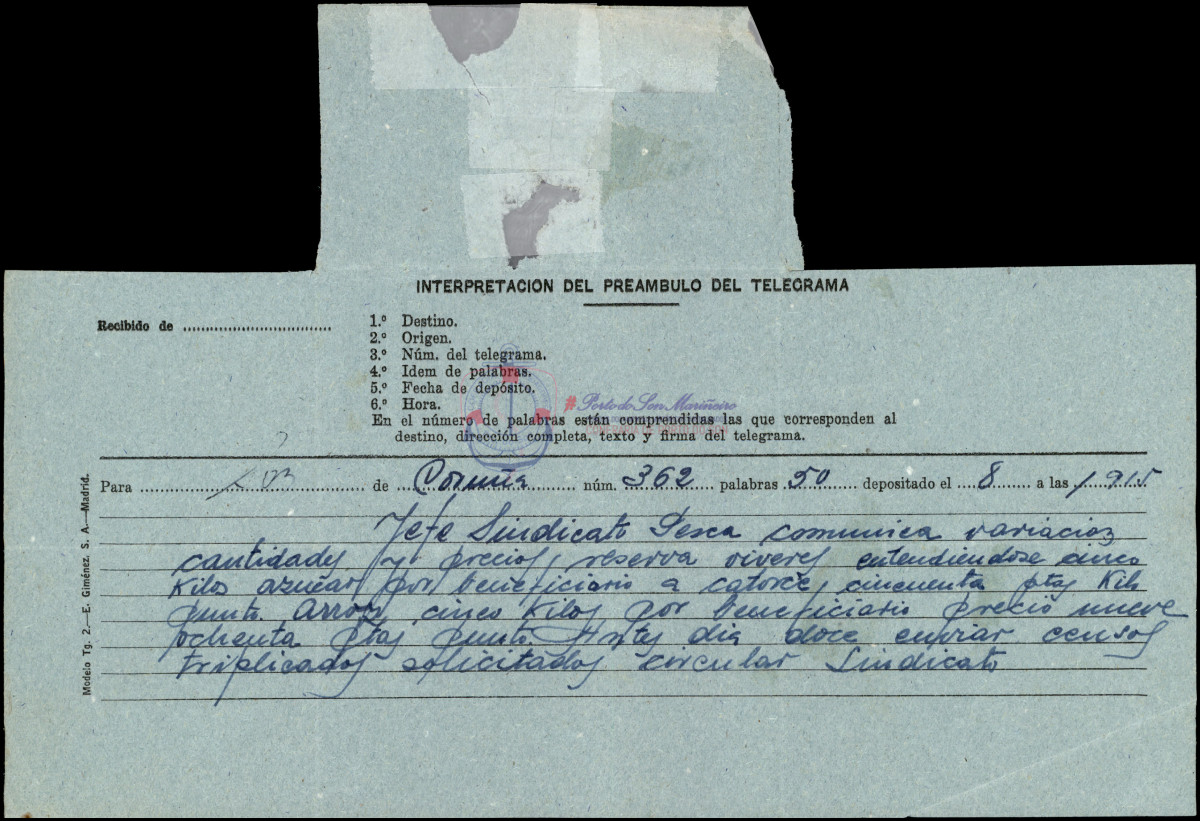 INTERPRETACION DEL PREAMBULO DEL TELEGRAMA
Recibido de
1.º Destino.
2.º Origen.
3.º Núm. del telegrama.
4.º Idem de palabras.
5.º Fecha de depósito.
6.º Hora.
# Porto do Son Mariñeiro
En el número de palabras están comprendidas las que corresponden al
destino, dirección completa, texto y firma del telegrama.
Para de Coruña núm. 362 palabras 50 depositado el 8 a las 1915
Jefe Sindicato Pesca comunica variacion
cantidades y precios reserva viveres entendiendose cinco
Kilos azucar por beneficiario a catorce cincuenta ptas Kilo
punto. Arroz cinco Kilos por beneficiario precio nueve
ochenta ptas punto. Antes dia doce enviar censos
triplicados solicitados circular Sindicato
Modelo Tg. 2.—E. Giménez. S. A.—Madrid.